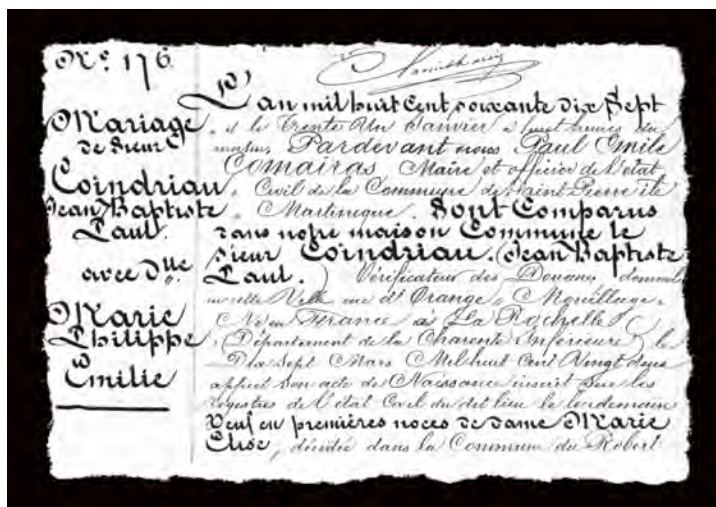 No. 176
Mariage
de Sieur
Coindriau
Jean Baptiste
Paul
avec Dlle
Marie
Philippe
Emilie
L'an mil huit Cent soixante dix Sept
et le Trente Un Janvier à huit heures du
matin, Pardevant nous Paul Emile
Comairas Maire et officier de l'état
Civil de la Commune de Saint-Pierre île
Martinique. Sont Comparus
dans notre maison Commune le
sieur Coindriau. (Jean Baptiste
Paul.) Vérificateur des Douanes
Ville rue d'Orange, Mouillage.
Né en France à La Rochelle
(Département de la Charente Inférieure) le
Dix Sept Mars Mil huit Cent Vingt deux
appert son acte de Naissance inscrit sur les
registres de l'état Civil du dit lieu le lendemain
Veuf en premières noces de dame Marie
Elise, décédée dans la Commune du Robert